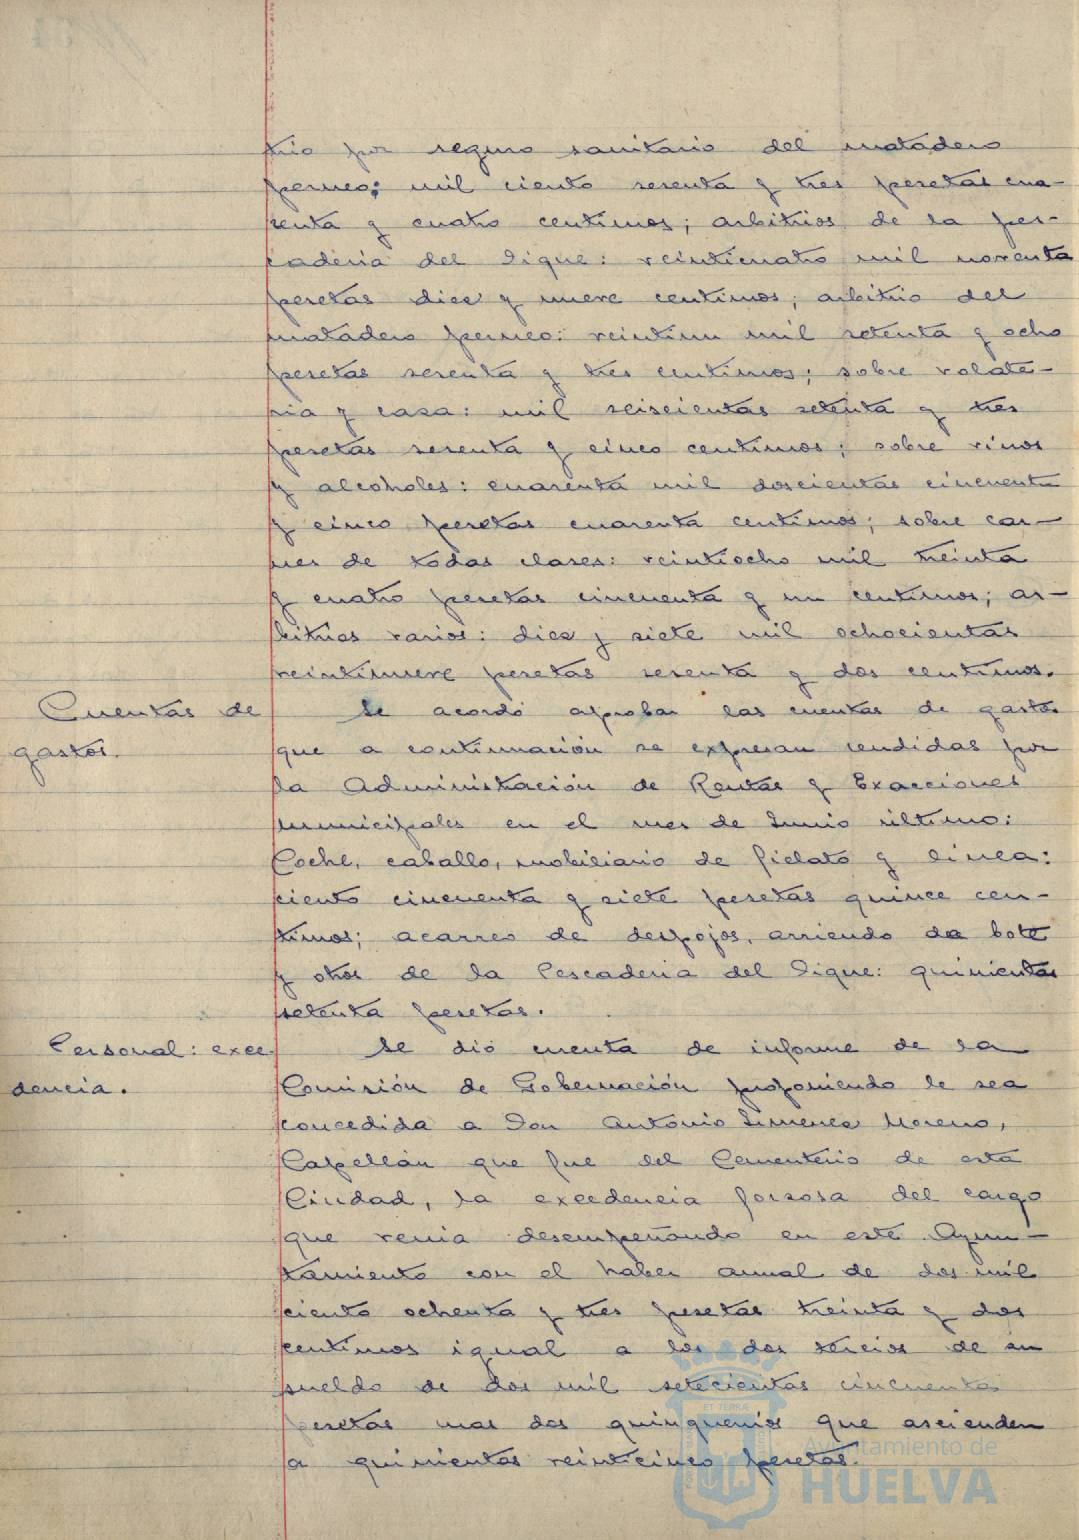 trio por seguro sanitario del matadero
perneo; mil ciento sesenta y tres pesetas cua-
renta y cuatro centimos; arbitrios de la pes-
caderia del Dique: veinticuatro mil noventa
pesetas diez y nueve centimos; arbitrio del
matadero perneo: veintiun mil setenta y ocho
pesetas sesenta y tres centimos; sobre volate-
ria y casa: mil seiscientas setenta y tres
pesetas sesenta y cinco centimos; sobre vinos
y alcoholes: cuarenta mil doscientas cincuenta
y cinco pesetas cuarenta centimos; sobre car-
nes de todas clases: veintiocho mil treinta
y cuatro pesetas cincuenta y un centimos; ar-
bitrios varios: diez y siete mil ochocientas
veintinueve pesetas sesenta y dos centimos.
Cuentas de
gastos.
Se acordó aprobar las cuentas de gastos
que a continuación se expresan rendidas por
la Administración de Rentas y Exacciones
Municipales en el mes de Junio último:
Coche, caballo, mobiliario de fielato y linea:
ciento cincuenta y siete pesetas quince cen-
timos; acarreo de despojos, arriendo de bote
y otros de la Pescaderia del Dique: quinientas
setenta pesetas.
Personal: exce
dencia.
Se dió cuenta de informe de la
Comisión de Gobernación proponiendo le sea
concedida a Don Antonio Jimenez Moreno,
Capellán que fue del Cementerio de esta
Ciudad, la excedencia forzosa del cargo
que venia desempeñando en este Ayun-
tamiento con el haber anual de dos mil
ciento ochenta y tres pesetas treinta y dos
centimos igual a los dos tercios de su
sueldo de dos mil setecientas cincuenta
pesetas mas dos quinquenios que ascienden
a quinientas veinticinco pesetas.
Ayuntamiento de
HUELVA